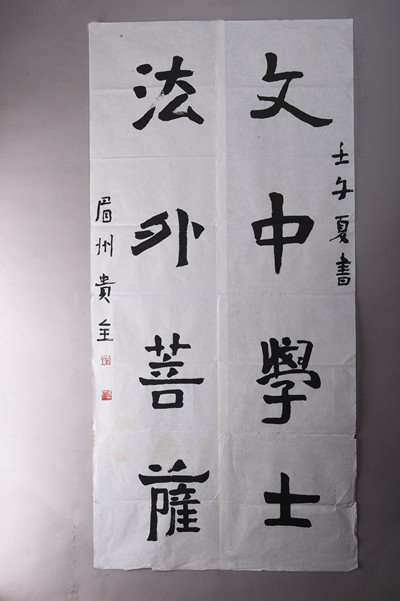 壬午夏書
文中學士
法外菩薩
眉州貴全